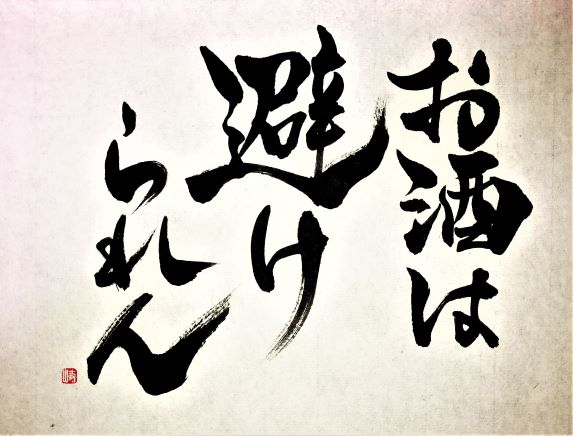 お酒は
避け
られん